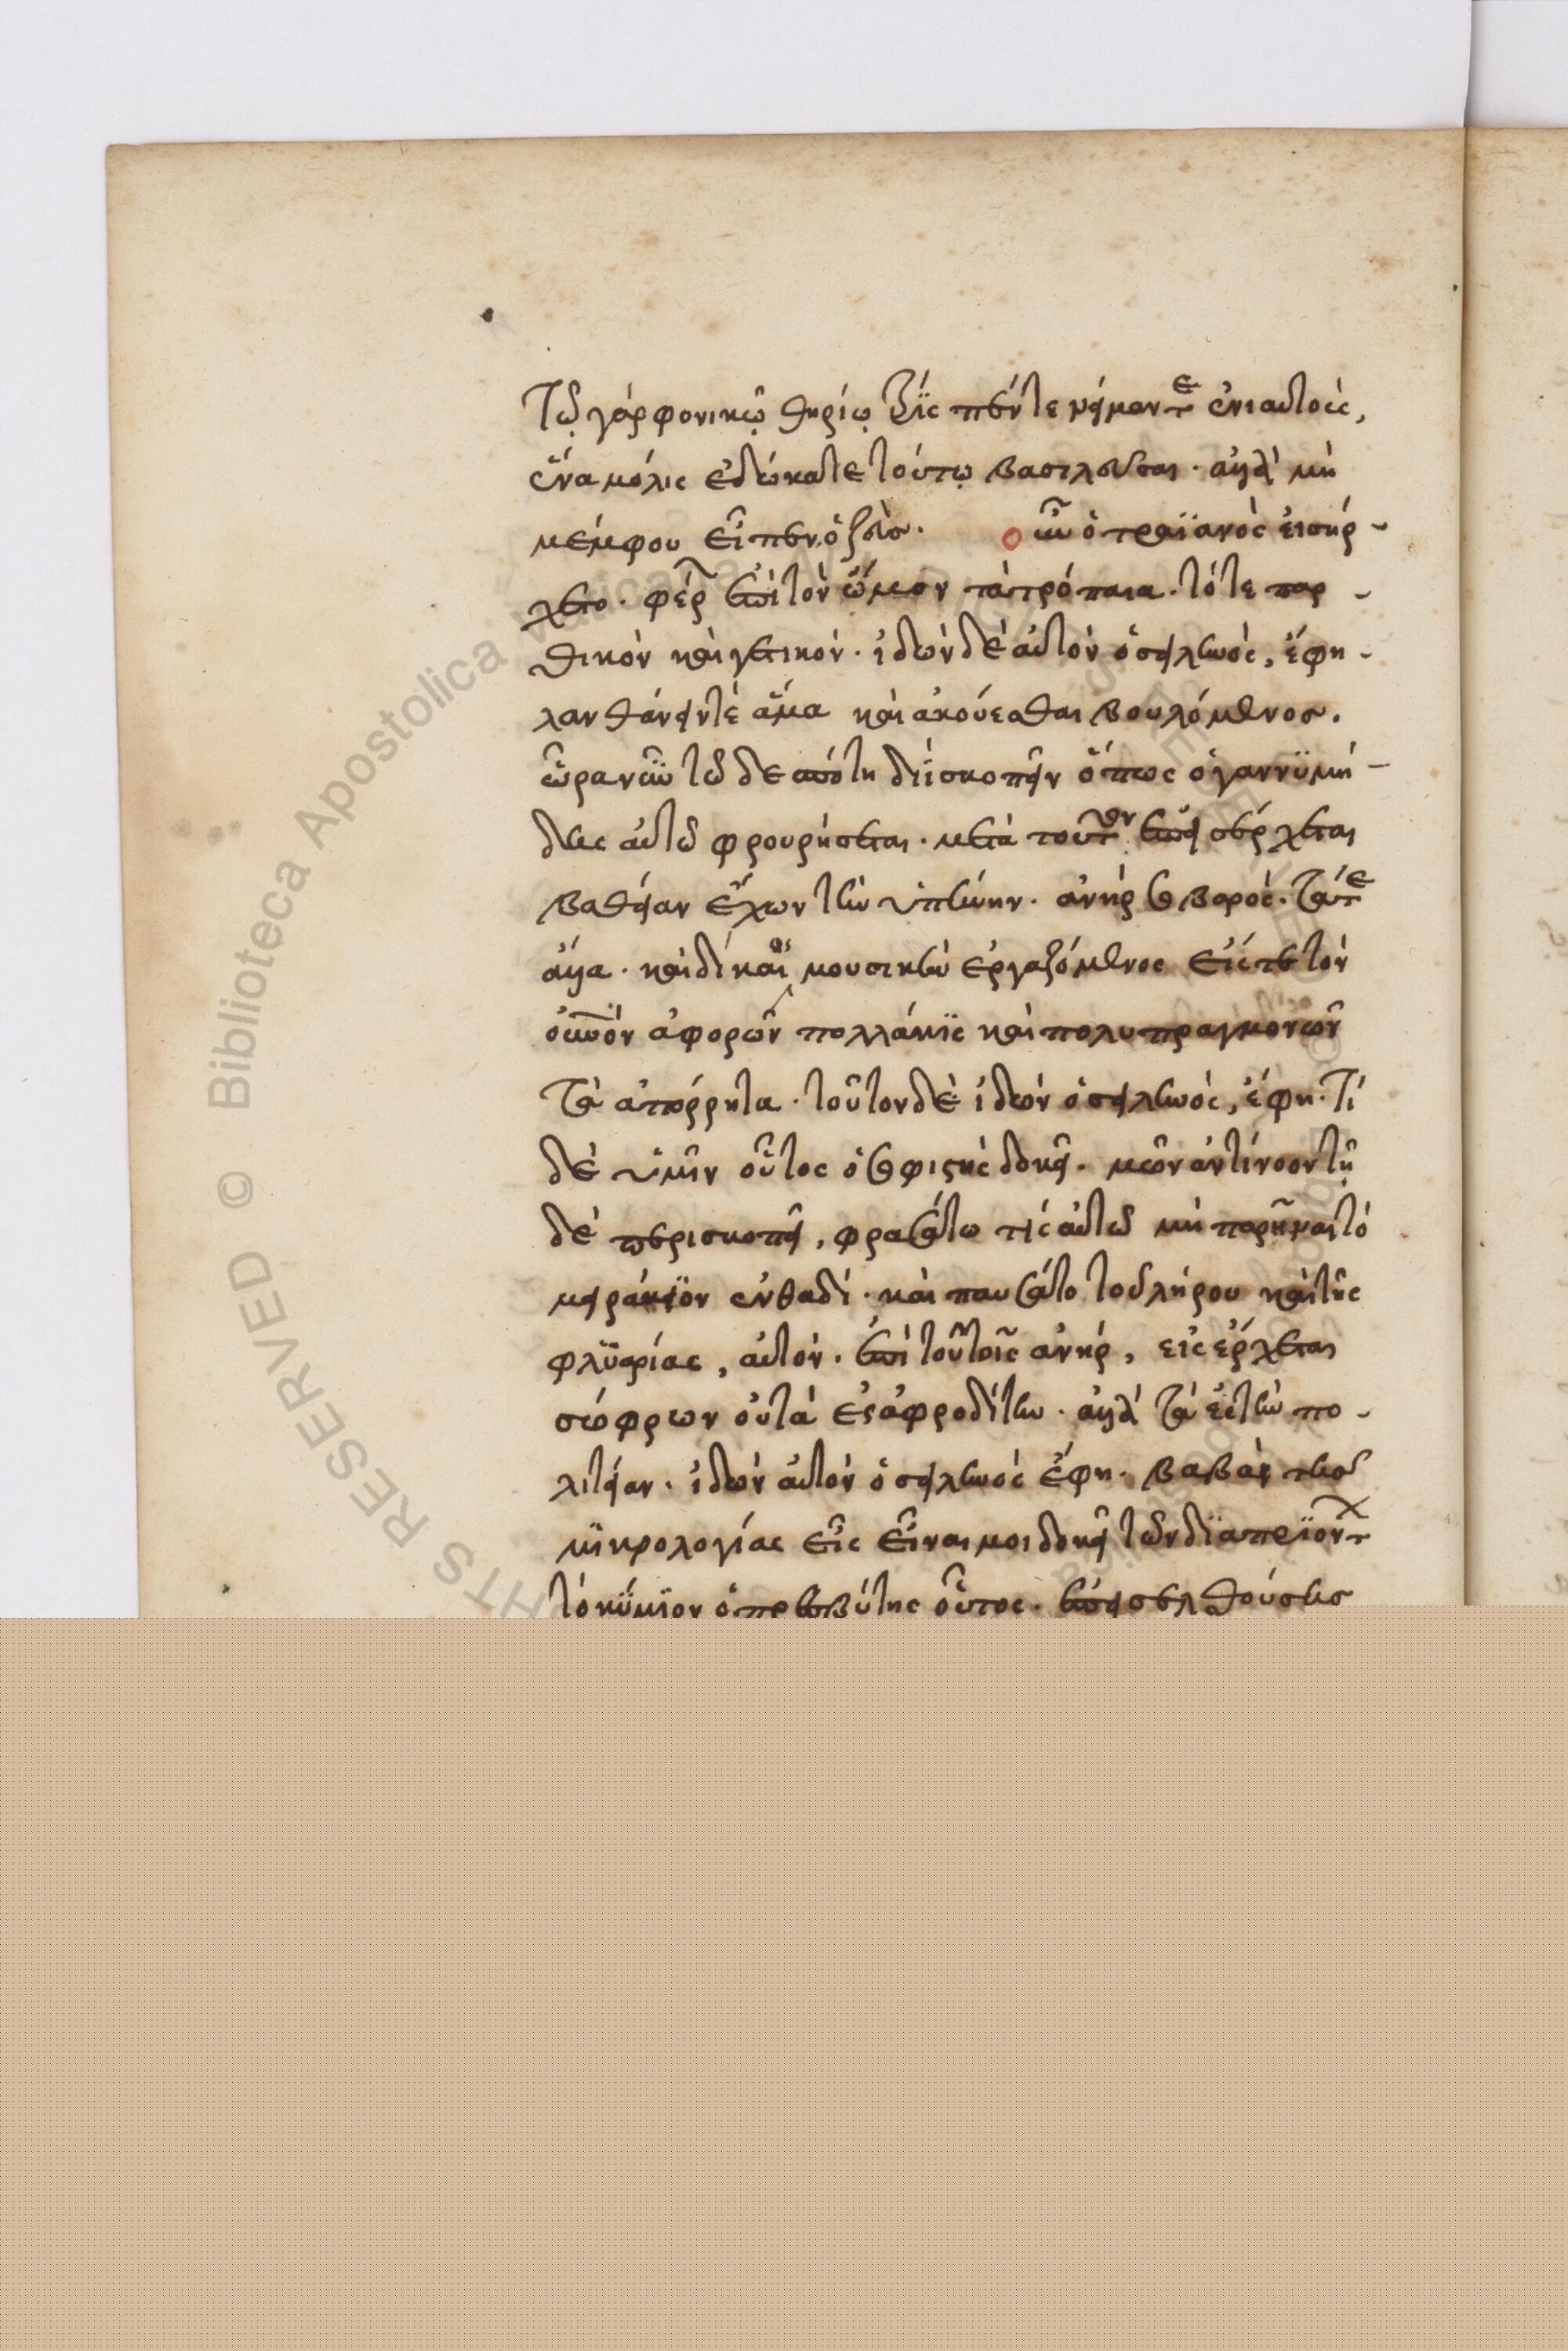 Τῷ γάρ φονικῷ θηρίῳ τρὶς πέντε νείμαντες ἐνιαυτοὺς,
ἕνα μόλις ἐδώκατε τούτῳ βασιλεῦσαι. ἀλλὰ μὴ
μέμφου εἶπεν ὁ ζεὺσ. οὖν ὁ τραϊανὸς εἰσήρ-
χετο. φέρων ἐπὶ τὸν ὦμον τὰ τρόπαια. τό τε παρ-
θικὸν καὶ γετικόν. ἰδὼν δὲ αὐτὸν ὁ σειληνὸς, ἔφη-
λανθάνειν τὲ ἅμα καὶ ἀκούεσθαι βουλόμενοσ.
ὥρα νῦν τῷ δεσπότῃ διῒ σκοπεῖν ὅπως ὁ γαννϋμή-
δης αὐτῷ φρουρήσεται. μετὰ τοῦτον ἐπεισέρχεται
βαθεῖαν ἔχων τὴν ὑπήνην. ἀνὴρ σοβαρὸς. τά τε
ἄλλα. καὶ δὴ καὶ μουσικὴν ἐργαζόμενος εἴς τε τὸν
οὐρανὸν ἀφορῶν πολλάκϊς καὶ πολυπραγμονῶν
τὰ ἀπόρρητα. τοῦτον δὲ ἰδὼν ὁ σειληνὸς, ἔφη. Τί
δὲ ὑμῖν οὗτος ὁ σοφιστὴς δοκεῖ. μῶν ἀντίνοον τῇ
δὲ περισκοπεῖ, φρασάτω τίς αὐτῷ μὴ παρεῖναι τὸ
μειράκϊον ἐνθαδί. καὶ παυσάτο τοῦ λήρου καὶ τῆς
φλϋαρίας, αὐτόν. ἐπὶ τούτοις ἀνὴρ, εἰσέρχεται
σώφρων οὐ τὰ ἐς ἀφροδίτην. ἀλλὰ τὰ ἐς τὴν πο-
λιτείαν. ἰδὼν αὐτὸν ὁ σειληνὸς ἔφη. βαβαὶ τῆσ
μϊκρολογίας εἷς εἶναι μοι δοκεῖ τῶν δϊαπρϊόντων
τὸ κύμϊνον ὁ πρεσβύτης οὗτος. ἐπεισελθούσησ
Biblioteca Apostolica Vaticana
RIGHTS RESERVED ©